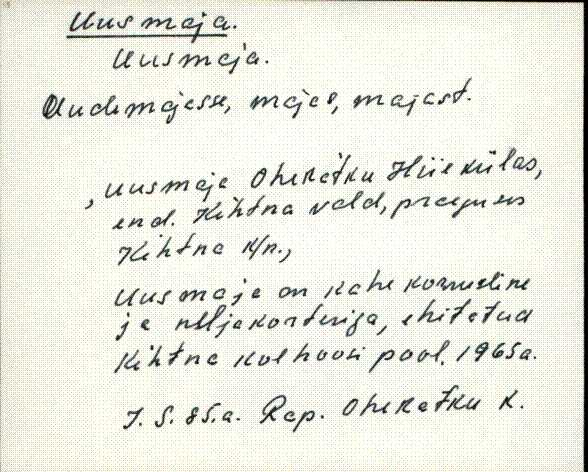 Uusmaja.
Uusmaja.
Uudemajasse, majas, majast.
, Uusmaja Oherätku Hiiekülas,
end. Kihtna vald, praegu us
Kihtna K/n.,
Uusmaja on kahe korruseline
ja neljakorteriga, ehitatud
Kihtna kolhoosi pool. 1965a.
J. S. 85.a. Rap. Oherätku K.